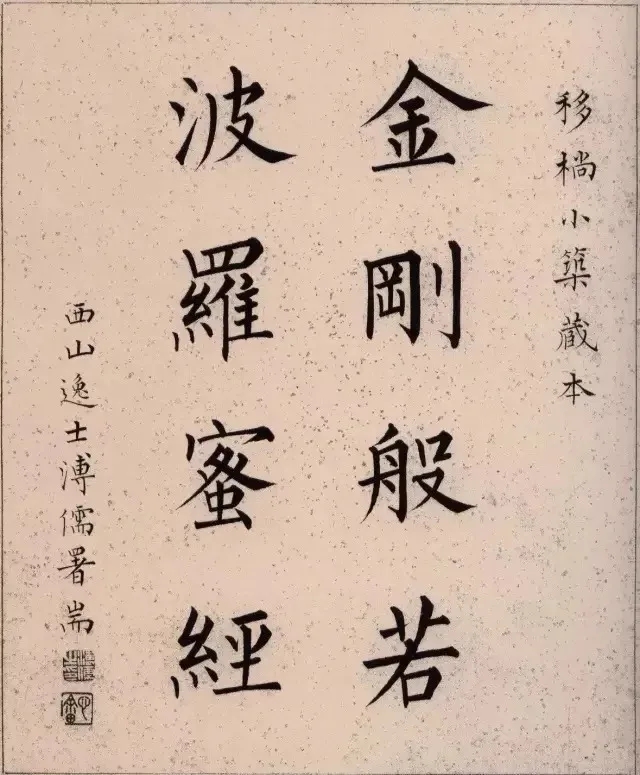 移橋小築蔵本
金剛般若
波羅蜜經
西山逸士溥儒署耑